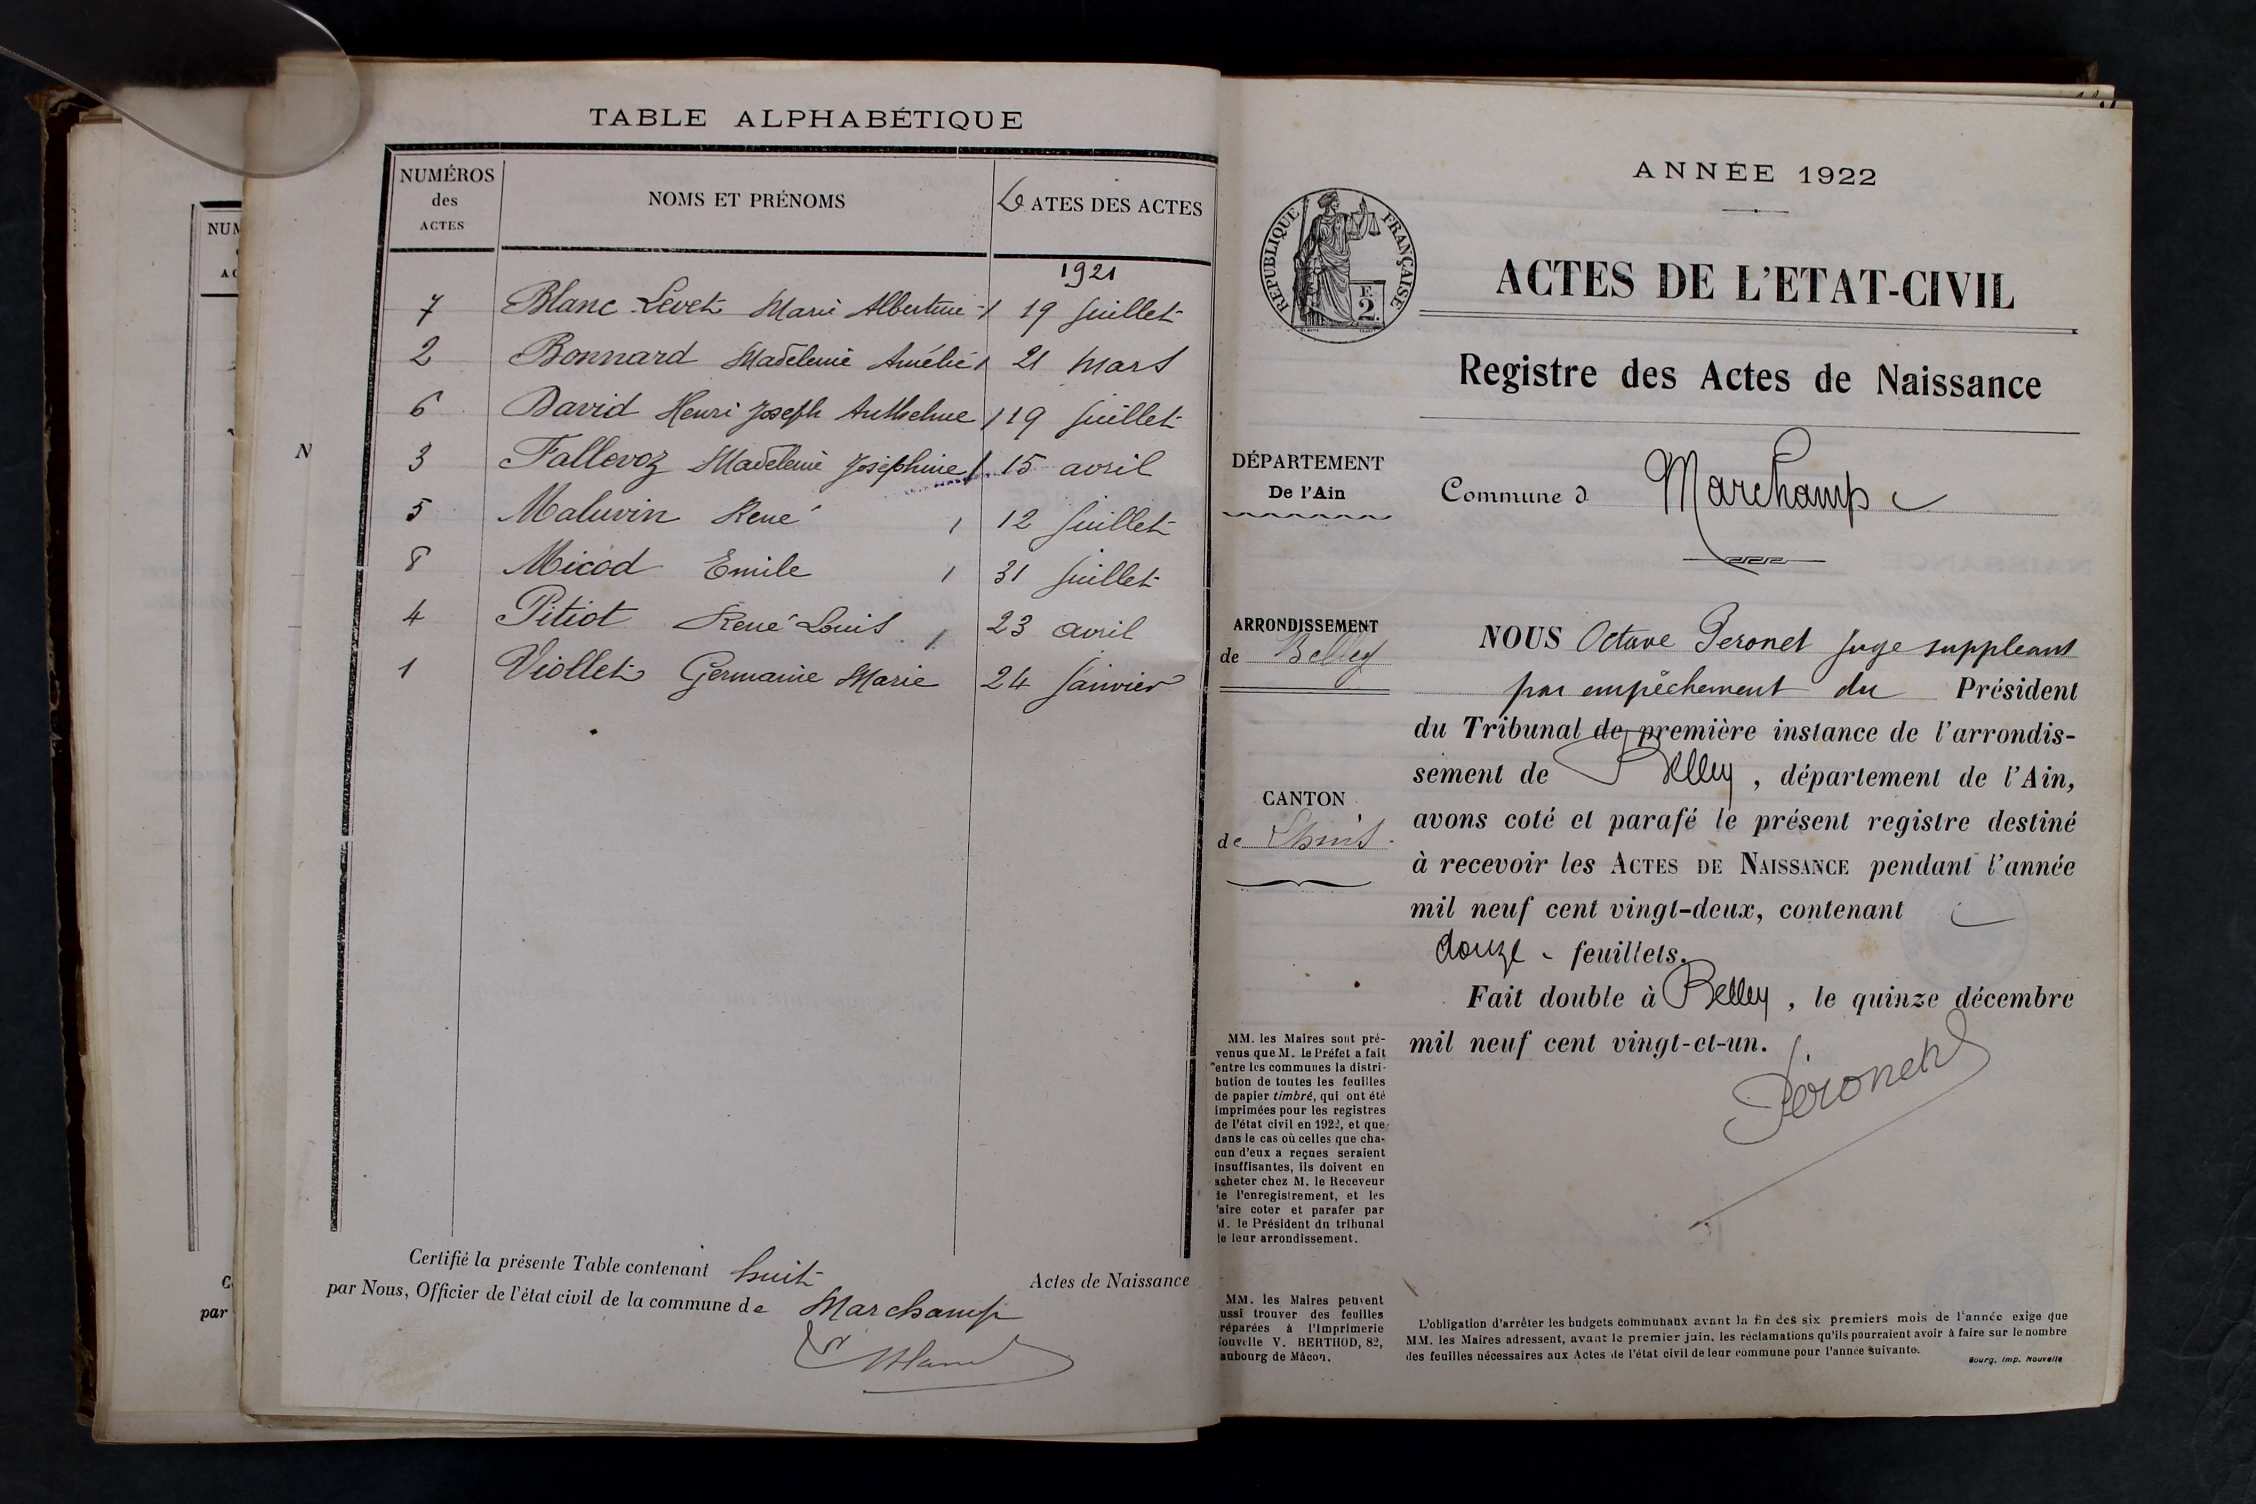 TABLE ALPHABÉTIQUE
NUMÉROS des ACTES
NOMS ET PRÉNOMS
DATES DES ACTES
1921
7 Blanc-Levet Marie Albertine 19 Juillet
2 Bonnard Madeleine Amélie 21 Mars
6 David Henri Joseph Anthelme 19 Juillet
3 Fallevoz Madeleine Joséphine 15 avril
5 Maluvin René 12 Juillet
8 Micod Emile 31 Juillet
4 Pitiot René Louis 23 avril
1 Viollet Germaine Marie 24 Janvier
Certifié la présente Table contenant huit Actes de Naissance
par Nous, Officier de l'état civil de la commune de Marchamp
NUM
AC
N
C
par
ANNÉE 1922
RÉPUBLIQUE FRANÇAISE
F.
2.
ACTES DE L'ETAT-CIVIL
Registre des Actes de Naissance
DÉPARTEMENT
De l'Ain
Commune d Marchamp
ARRONDISSEMENT
de Belley
CANTON
de Lhuis
NOUS Octave Peronet Juge suppleant
par empêchement du Président
du Tribunal de première instance de l'arrondis-
sement de Belley, département de l'Ain,
avons coté et parafé le présent registre destiné
à recevoir les ACTES DE NAISSANCE pendant l'année
mil neuf cent vingt-deux, contenant
douze feuillets.
Fait double à Belley, le quinze décembre
mil neuf cent vingt-et-un.
Péronet
MM. les Maires sont pré-
venus que M. le Préfet a fait
entre les communes la distri-
bution de toutes les feuilles
de papier timbré, qui ont été
imprimées pour les registres
de l'état civil en 1922, et que
dans le cas où celles que cha-
cun d'eux a reçues seraient
insuffisantes, ils doivent en
acheter chez M. le Receveur
de l'enregistrement, et les
faire coter et parafer par
M. le Président du tribunal
de leur arrondissement.
MM. les Maires peuvent
aussi trouver des feuilles
préparées à l'Imprimerie
Nouvelle V. BERTHOD, 82,
faubourg de Mâcon.
L'obligation d'arrêter les budgets communaux avant la fin des six premiers mois de l'année exige que
MM. les Maires adressent, avant le premier juin, les réclamations qu'ils pourraient avoir à faire sur le nombre
des feuilles nécessaires aux Actes de l'état civil de leur commune pour l'année suivante.
Bourg, Imp. Nouvelle